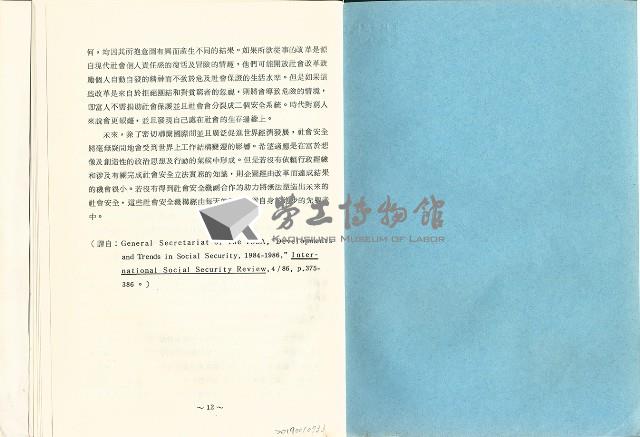 何，均因其所抱意圖有異而產生不同的結果。如果所欲從事的改革是源
自現代社會個人責任感的復活及冒險的情趣，他們可能開放社會改革鼓
勵個人自動自發的精神而不致於危及社會保證的生活水準。但是如果這
些改革是來自於拒絕團結和對貧窮者的忽視，則將會導致危險的情境，
即富人不需捐助社會保護並且社會會分裂成二個安全系統。時代對窮人
來說會更艱難，並且發現自己處在社會的生存邊緣上。
未來，除了密切聯關國際間並且廣泛促進世界經濟發展，社會安全
將毫無疑問地會受到世界上工作結構變遷的影響。希望適應是在富於想
像及創造性的政治思想及行動的氣候中形成。但是若沒有依賴行政經驗
和涉及有關完成社會安全立法實務的知識，則企圖經由改革而達成結果
的機會很小。若沒有得到社會安全機關合作的助力將無法塑造出未來的
社會安全，這些社會安全機構經由每天的
中。
勞工博物館
KAOHSIUNG MUSEUM OF LABOR
（譯自：General Secretariat of the ISSA, "Developments
and Trends in Social Security, 1984-1986," Inter-
national Social Security Review, 4/86, p.375-
386。）
～12～